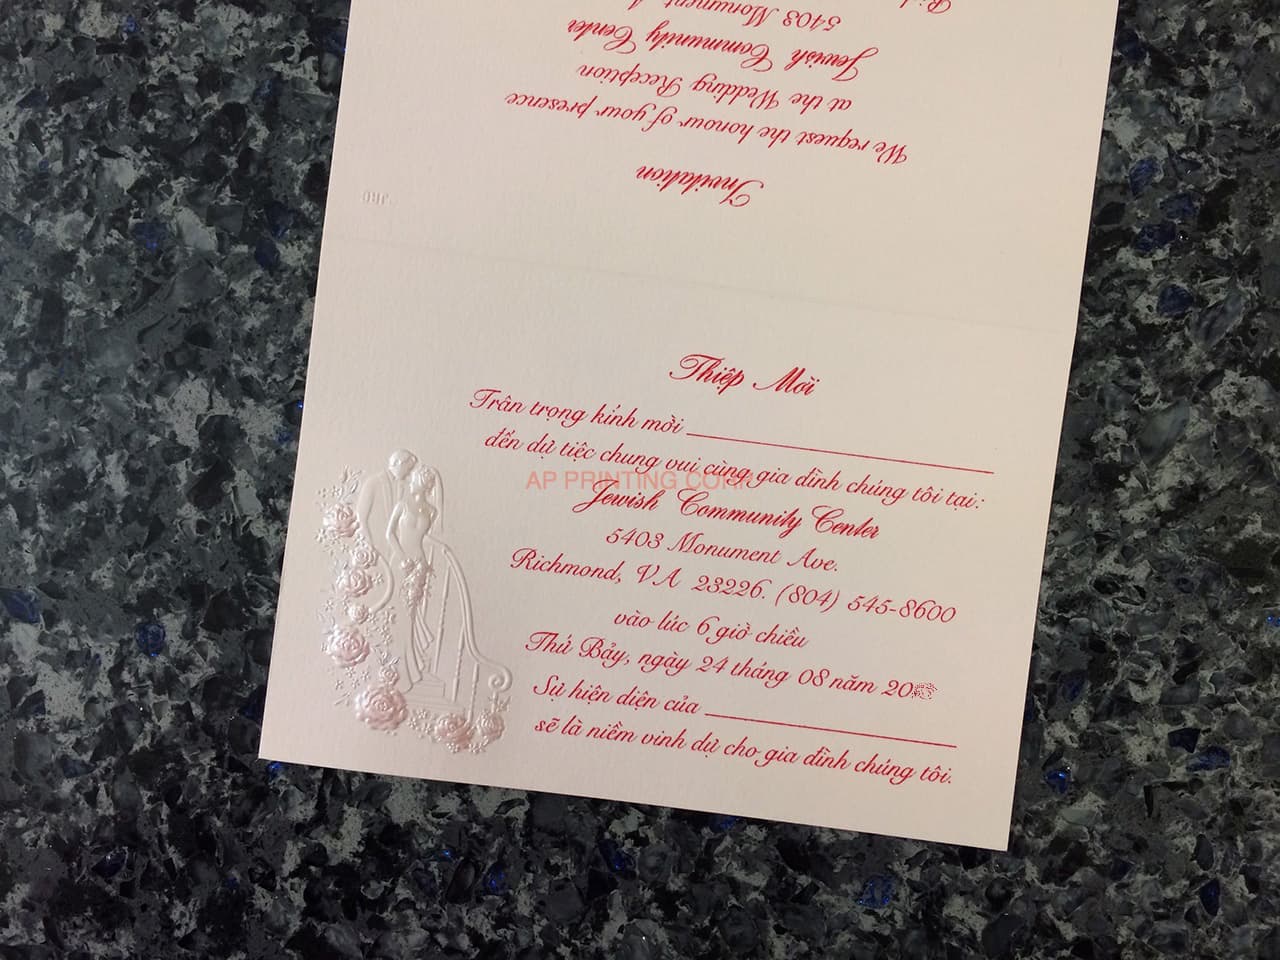 Rich
5403 Monument A
Jewish Community Center
at the Wedding Reception
We request the honour of your presence
Invitation
JRD
Thiệp Mời
Trân trọng kính mời
đến dự tiệc chung vui cùng gia đình chúng tôi tại:
AP PRINTING CORP.
Jewish Community Center
5403 Monument Ave.
Richmond, VA 23226. (804) 545-8600
vào lúc 6 giờ chiều
Thứ Bảy, ngày 24 tháng 08 năm 20
Sự hiện diện của
sẽ là niềm vinh dự cho gia đình chúng tôi.